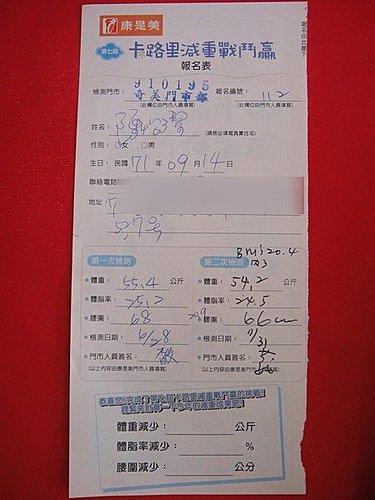 康是美
第七屆 卡路里減重戰鬥贏
報名表
檢測門市： 910195 奇美門市 報名編號： 112
(此欄位由門市人員填寫) (此欄位由門市人員填寫)
姓名： (請務必填寫真實姓名)
性別： □女 □男
生日： 民國 71 年 09 月 14 日
聯絡電話
地址：
BMI 20.4
第一次檢測 第二次檢測
體重： 55.4 公斤 體重： 54.2 公斤
體脂率： 25.2 體脂率： 24.5
腰圍： 68 腰圍： 66cm
檢測日期： 6/28 檢測日期： 7/31
門市人員簽名： 門市人員簽名：
(以上內容由康是美門市人員填寫) (以上內容由康是美門市人員填寫)
體重減少： 公斤
體脂率減少： %
腰圍減少： 公分